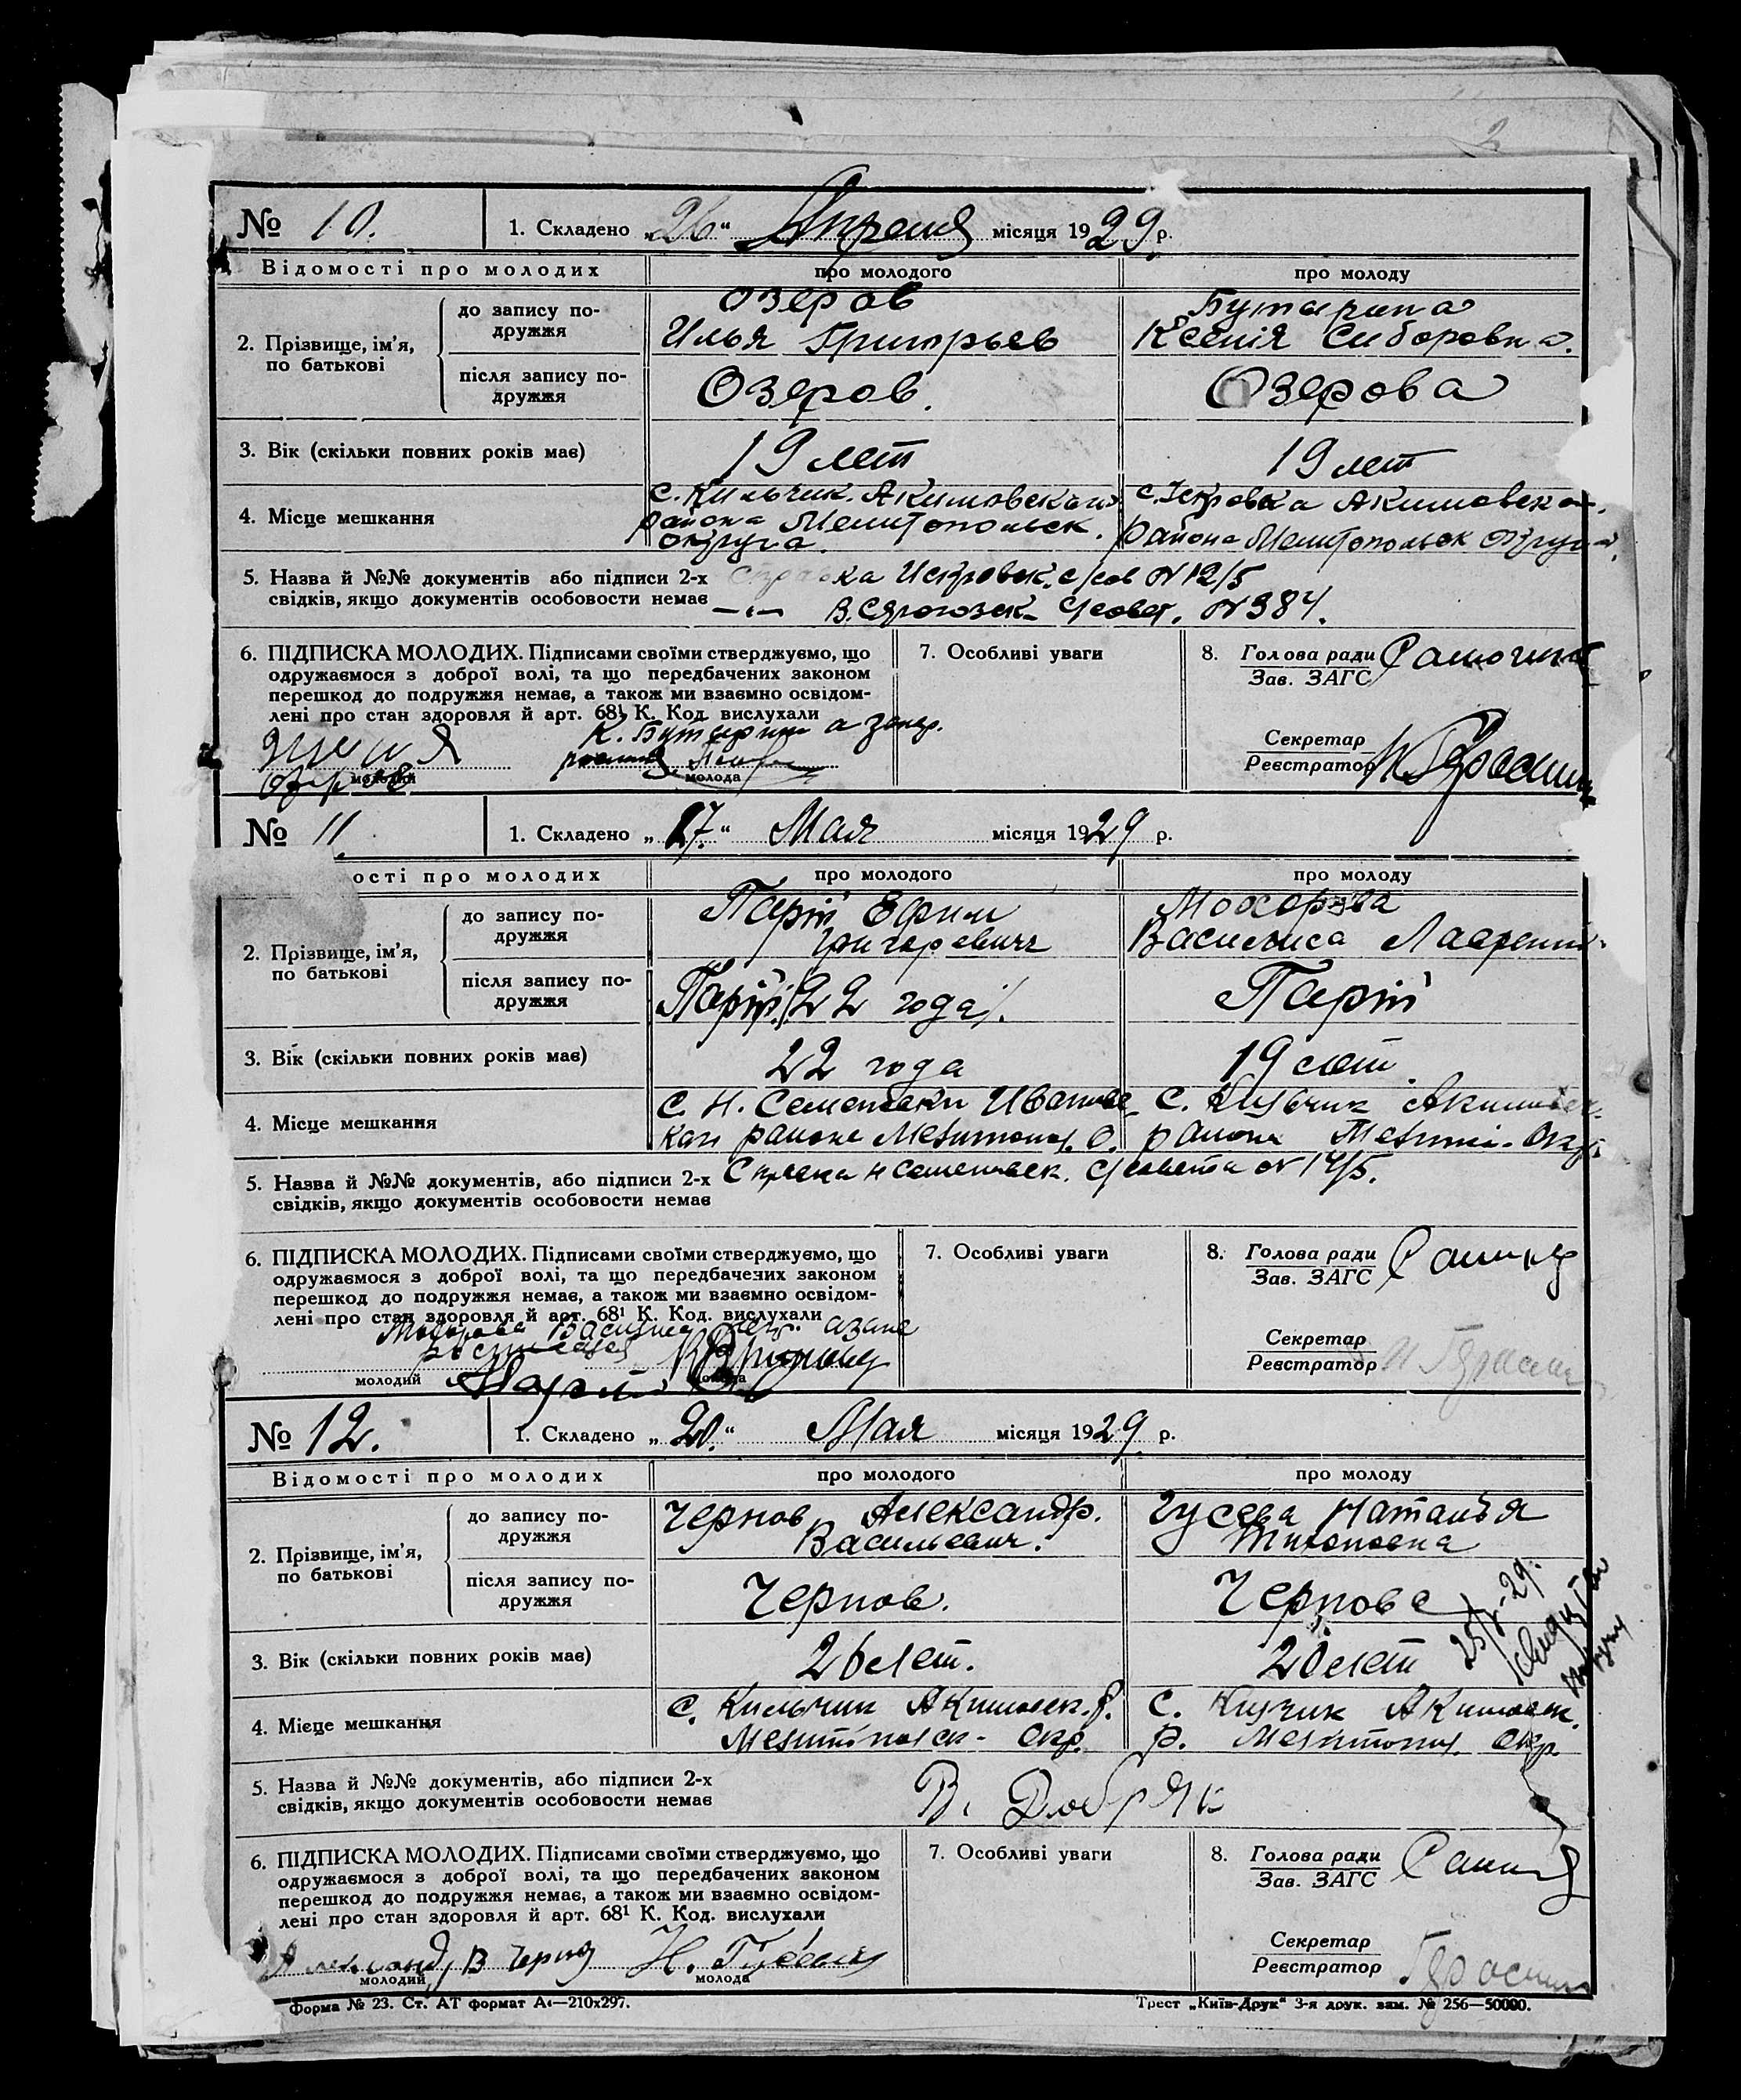 № 10. 1. Складено „26“ Апреля місяця 1929 р.
Відомості про молодих про молодого про молоду
2. Прізвище, ім’я, по батькові
до запису по-
дружжя
Озеров
Илья Григорьев
Бутырина
Ксенія Сидоровна.
після запису по-
дружжя
Озеров.
Озерова
3. Вік (скільки повних років має) 19 лет 19 лет
4. Місце мешкання
с. Кильчик. Акимовского
района Мелитопольск.
округа.
с. Искровка Акимовско
района Мелитопольск округа.
5. Назва й №№ документів або підписи 2-х
свідків, якщо документів особовости немає
Справка Искровск. с/сов № 12/5
—„— В. Сярогозск. с/совет. № 384.
6. ПІДПИСКА МОЛОДИХ. Підписами своїми стверджуємо, що
одружаємося з доброї волі, та що передбачених законом
перешкод до подружжя немає, а також ми взаємно освідом-
лені про стан здоровля й арт. 68¹ К. Код. вислухали
К. Бутырин а
Озеров
молодий молода
7. Особливі уваги
8. Голова ради
Зав. ЗАГС
Секретар
Реєстратор
№ 11. 1. Складено „17.“ Мая місяця 1929 р.
ості про молодих про молодого про молоду
2. Прізвище, ім’я,
по батькові
до запису по-
дружжя
Парій Ефим
Григоревич
Василиса Лаврент.
після запису по-
дружжя
Парій /22 года/.
Парій
3. Вік (скільки повних років має) 22 года 19 лет
4. Місце мешкання
С. Н. Семеневки Ивановс
кого района Мелитопол. О.
С. Кильчик Акимовск.
района Мелит. Окр.
5. Назва й №№ документів, або підписи 2-х
свідків, якщо документів особовости немає
Справка Н Семеневск. с/совета № 14/5.
6. ПІДПИСКА МОЛОДИХ. Підписами своїми стверджуємо, що
одружаємося з доброї волі, та що передбачених законом
перешкод до подружжя немає, а також ми взаємно освідом-
лені про стан здоровля й арт. 68¹ К. Код. вислухали
Василиса
молодий молода
7. Особливі уваги
8. Голова ради
Зав. ЗАГС
Секретар
Реєстратор
№ 12. 1. Складено „20.“ Мая місяця 1929 р.
Відомості про молодих про молодого про молоду
2. Прізвище, ім’я,
по батькові
до запису по-
дружжя
Чернов Александр.
Васильевич.
Гусева Наталья
Тихоновна
після запису по-
дружжя
Чернов.
Чернова
3. Вік (скільки повних років має) 26 лет. 20 лет
4. Місце мешкання
С. Кильчик Акимовск. р.
Мелитопольск- Окр.
С. Кильчик Акимовск.
р. Мелитопол. Окр.
5. Назва й №№ документів, або підписи 2-х
свідків, якщо документів особовости немає
В. Добряк
6. ПІДПИСКА МОЛОДИХ. Підписами своїми стверджуємо, що
одружаємося з доброї волі, та що передбачених законом
перешкод до подружжя немає, а також ми взаємно освідом-
лені про стан здоровля й арт. 68¹ К. Код. вислухали
Александ В Чернов Н. Гусева
молодий молода
7. Особливі уваги
8. Голова ради
Зав. ЗАГС
Секретар
Реєстратор
Форма № 23. Ст. АТ формат А₄—210х297.
Трест „Київ-Друк“ 3-я друк. зам. № 256—50000.